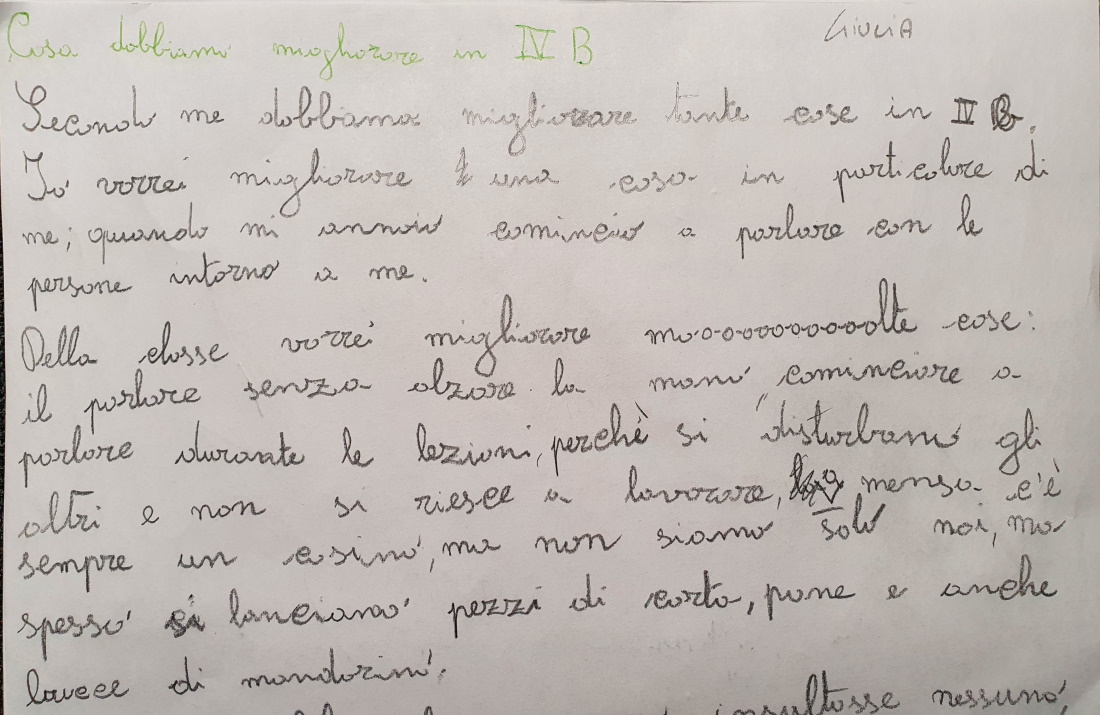 Cosa dobbiamo migliorare in IV B
GIULIA
Secondo me dobbiamo migliorare tante cose in IV B.
Io vorrei migliorare una cosa in particolare di
me; quando mi annoio comincio a parlare con le
persone intorno a me.
Della classe vorrei migliorare mooooooooolte cose:
il parlare senza alzare la mano cominciare a
parlare durante le lezioni, perchè si disturbano gli
altri e non si riesce a lavorare, mensa c'è
sempre un casino, ma non siamo solo noi, ma
spesso si lanciano pezzi di carta, pane e anche
bucce di mandarino.
insultasse nessuno,